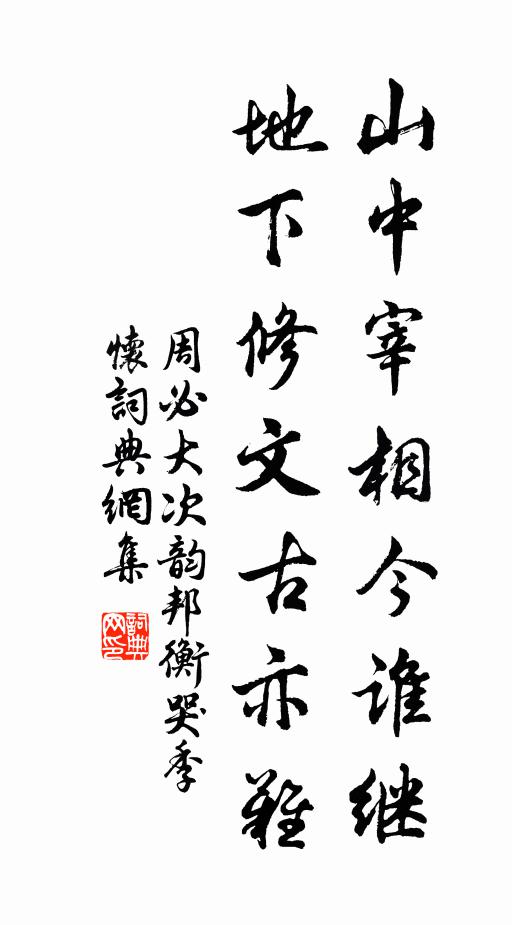 山中宰相今谁继
地下修文古亦難
周必大次韵邦衡哭季
懷詞典網集
詞典
网印